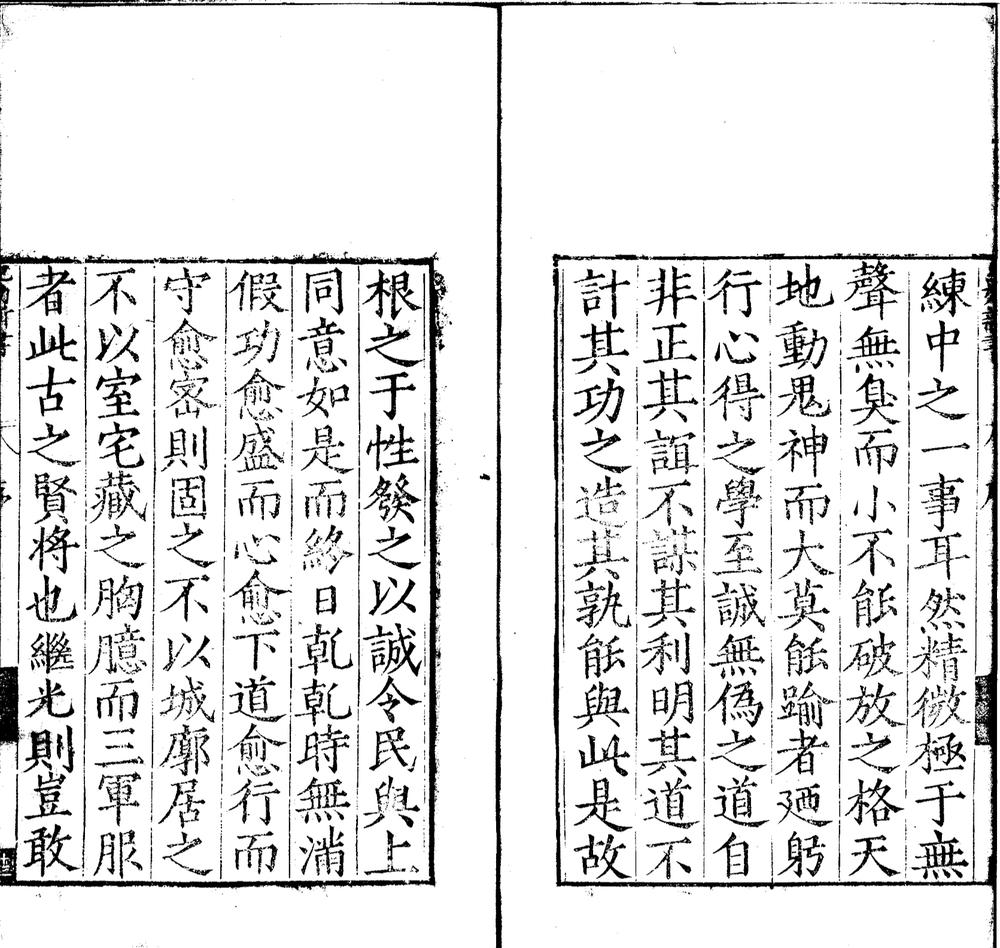 練中之一事耳然精微極于無
聲無臭而小不能破放之格天
地動鬼神而大莫能踰者廼躬
行心得之學至誠無偽之道自
非正其誼不謀其利明其道不
計其功之造其孰能與此是故
根之于性發之以誠令民與上
同意如是而終日乹乹時無滿
假功愈盛而心愈下道愈行而
守愈宻則固之不以城廓居之
不以室宅藏之胸臆而三軍服
者此古之賢將也繼光則豈敢